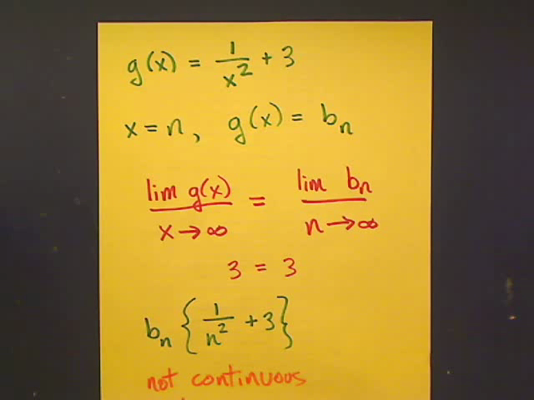 g(x) = 1/x² + 3
x = n, g(x) = bn
lim g(x) = lim bn
x→∞ n→∞
3 = 3
bn {1/n² + 3}
not continuous